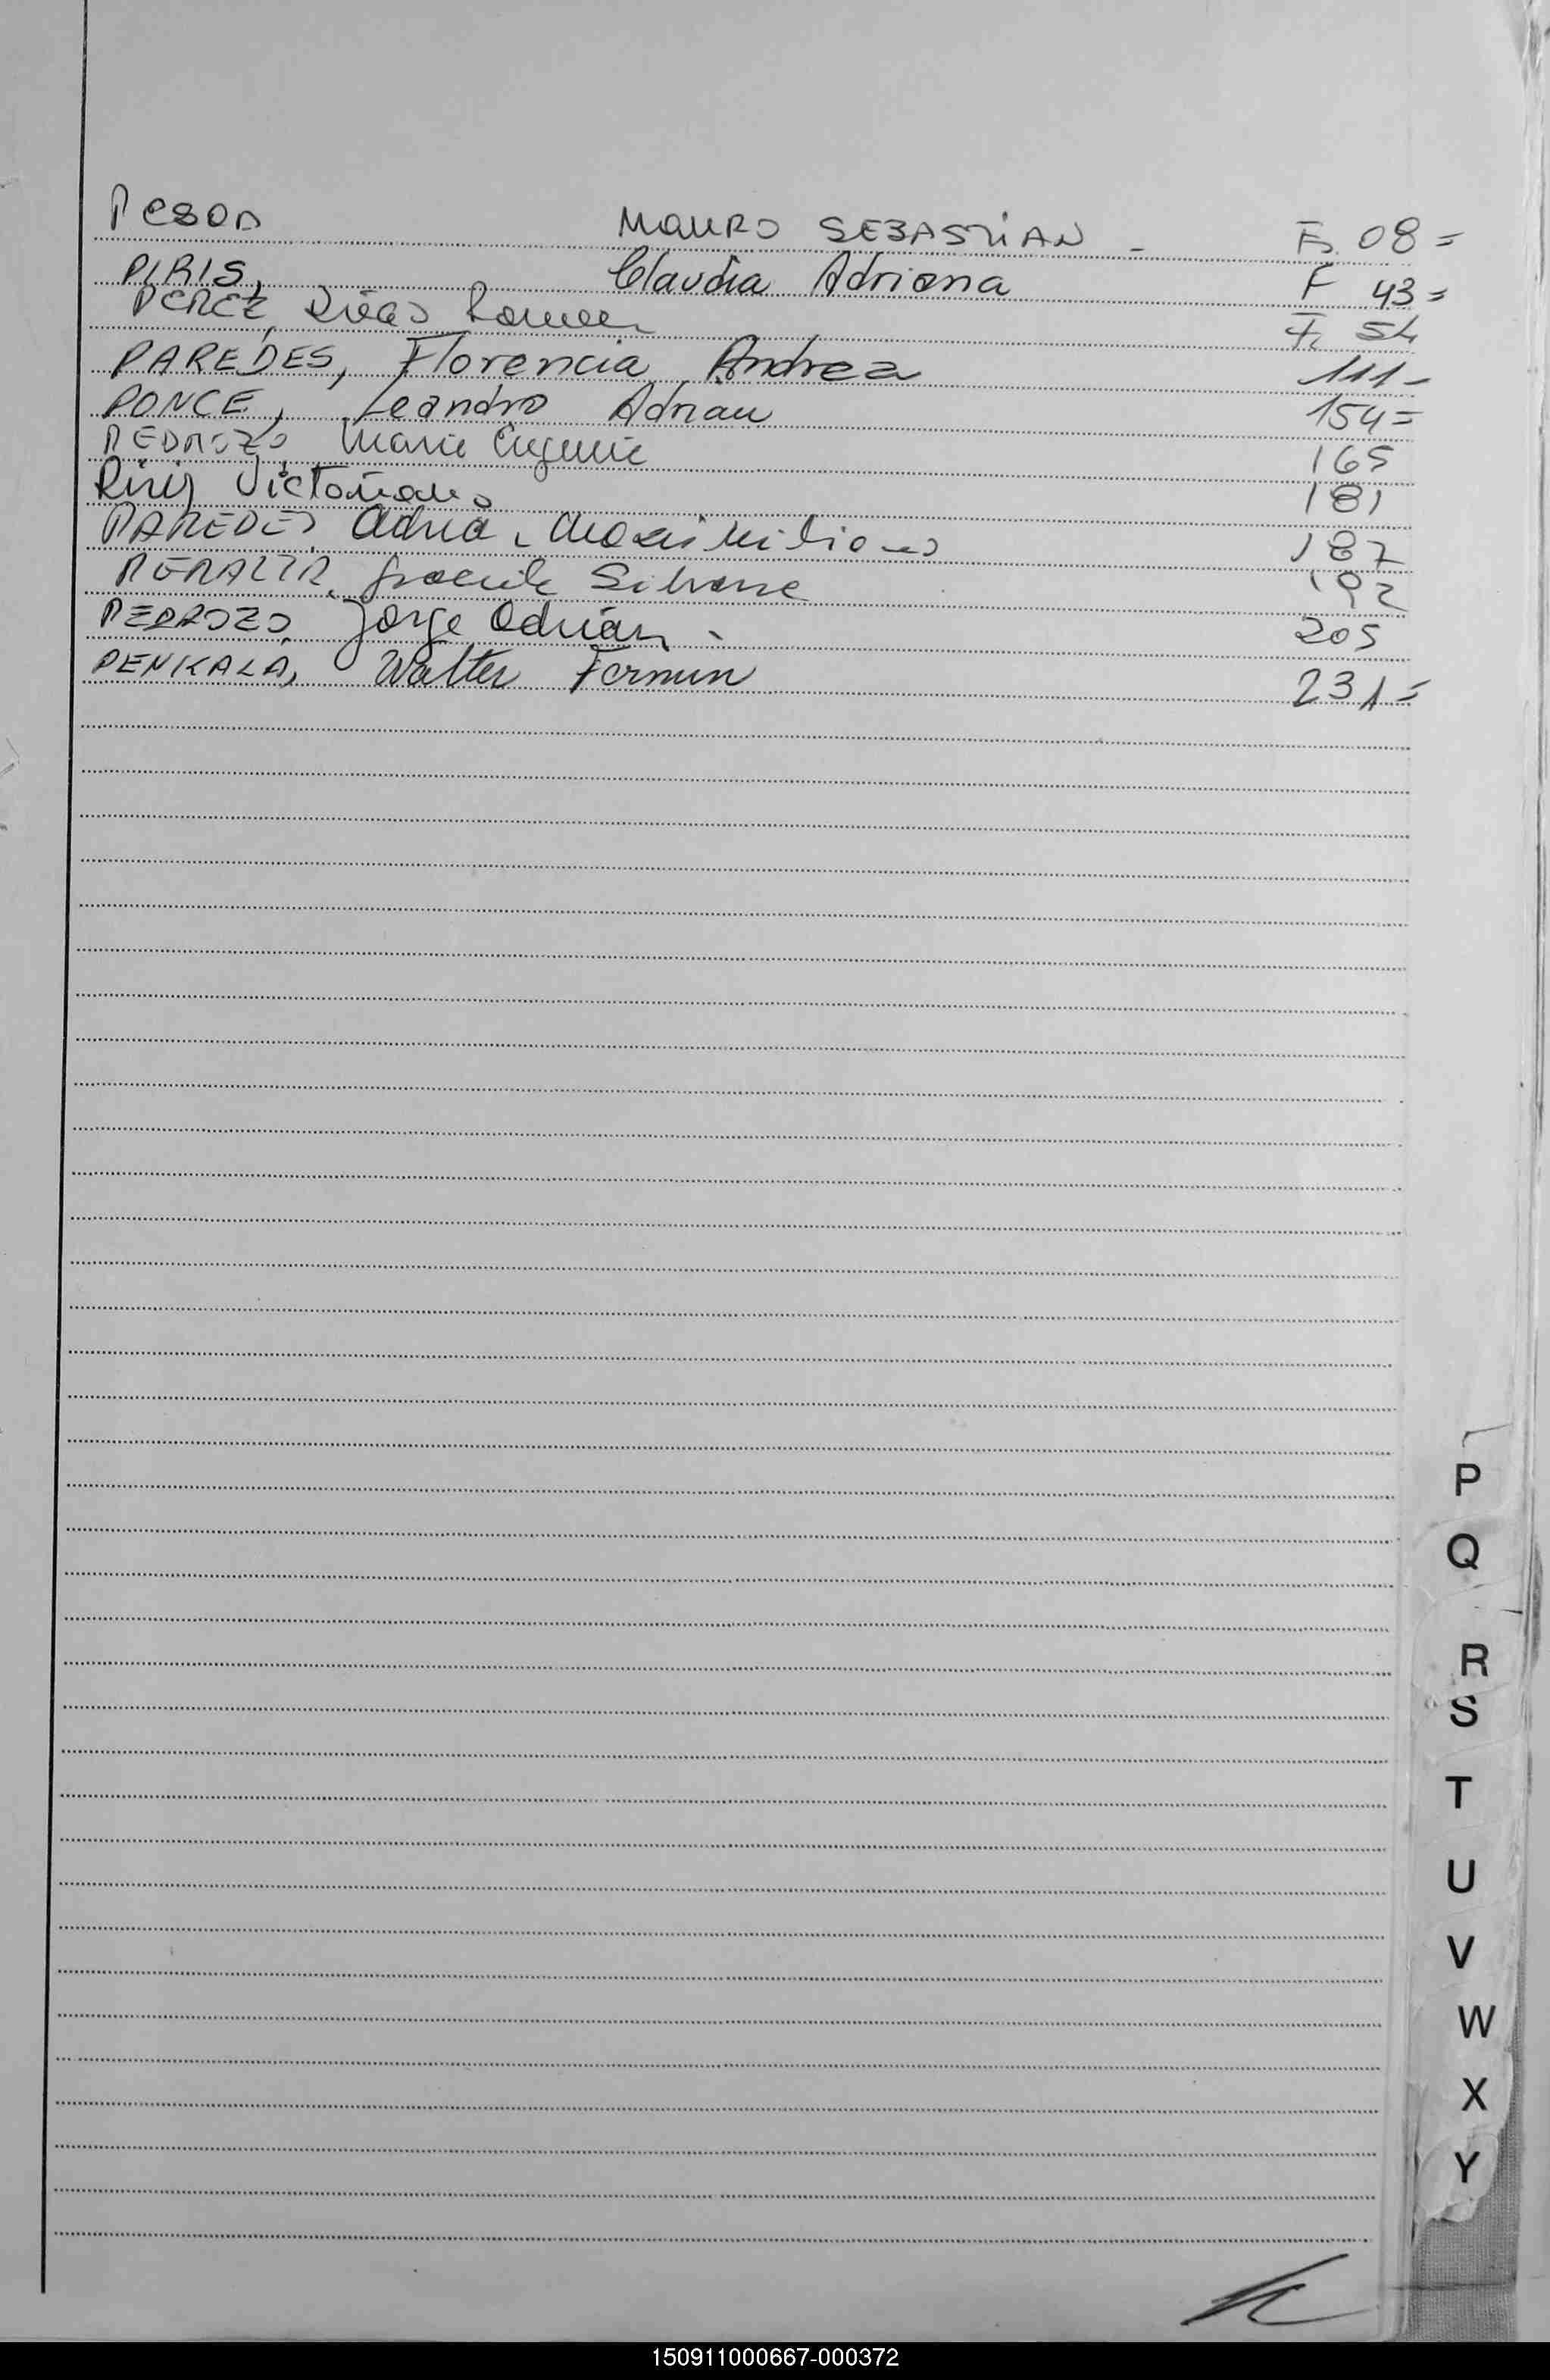 Pesoa MAURO SEBASTIAN - F. 08=
PIRIS, Claudia Adriana F 43=
PEREZ, Diego Ramon F. 54
PAREDES, Florencia Andrea 111-
PONCE, Leandro Adrian 154=
PEDROZO Maria Eugenia 165
Piris Victoriano 181
PAREDES Adria Maximiliano 187
PERALTA, Graciela Silvana 192
PEDROZO, Jorge Adrian - 205
PENKALA, Walter Fermin 231=
P
Q
R
S
T
U
V
W
X
Y
150911000667-000372